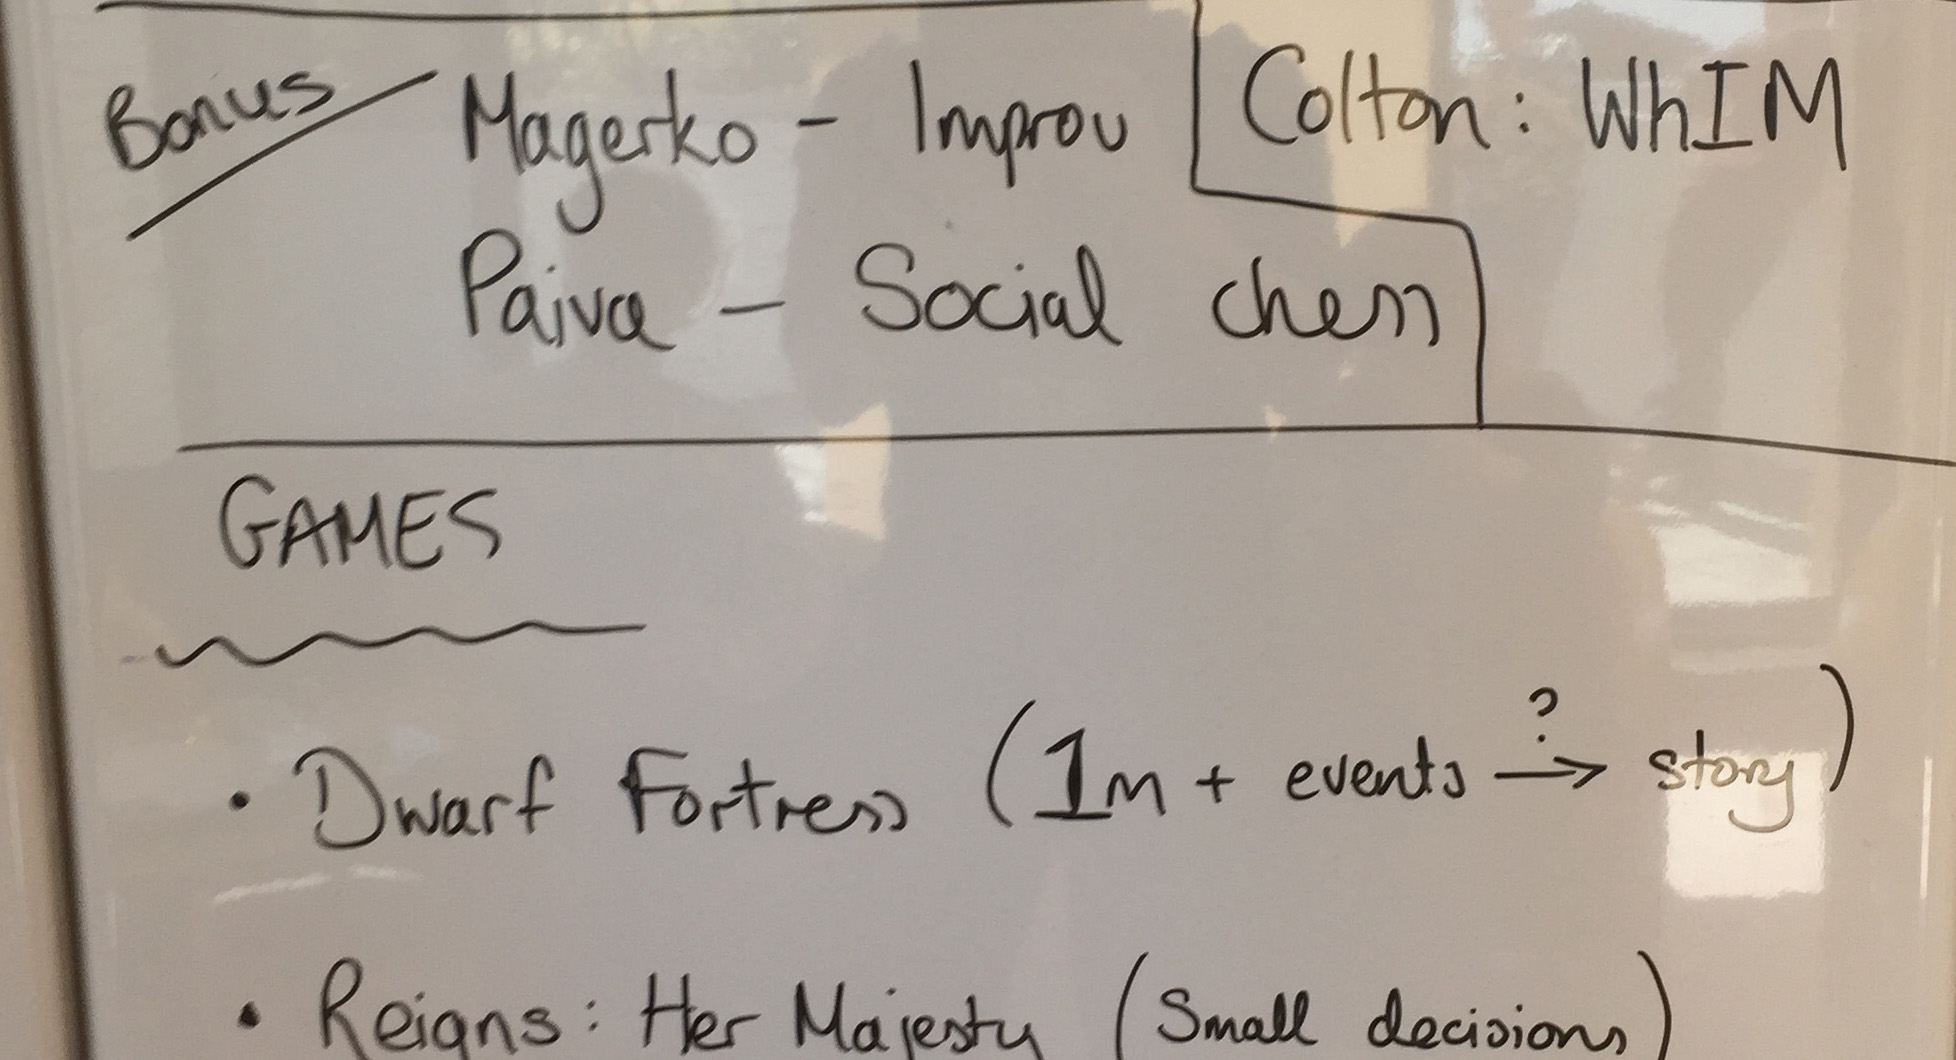 Bonus Magerko - Improv
Colton: WhIM
Paiva - Social chess
GAMES
• Dwarf Fortress (1m + events ?→ story)
• Reigns: Her Majesty (Small decisions)